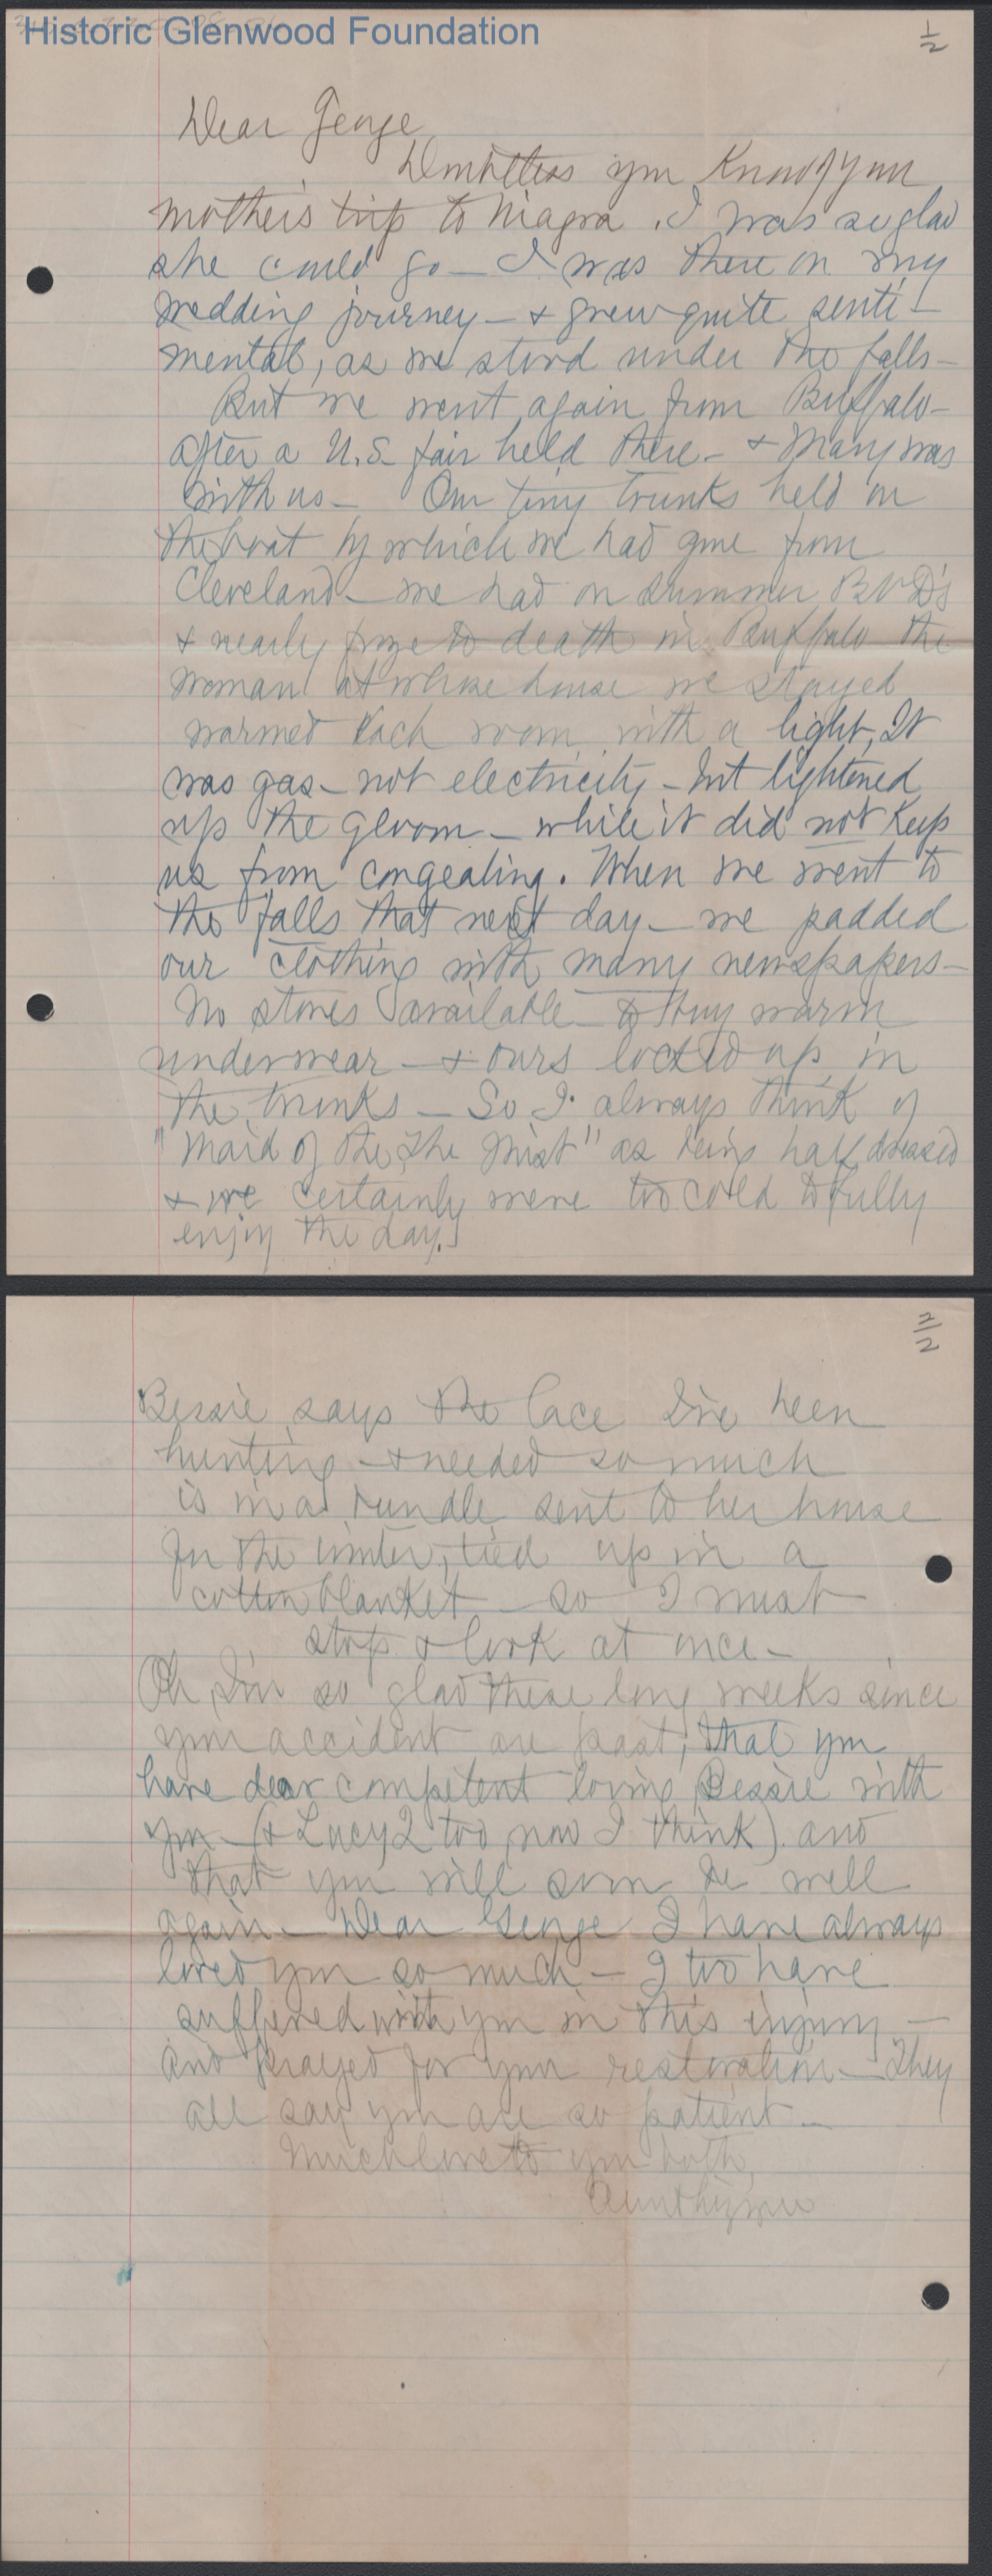 Historic Glenwood Foundation
1/2
Dear George
Doubtless you know of your
mother's trip to Niagra. I was so glad
she could go — I was there on my
wedding journey — & grew quite senti-
mental, as we stood under the falls —
But we went again from Buffalo —
after a U.S. fair held there — & Mary was
with us — Our tiny trunks held on
the boat by which we had gone from
Cleveland — we had on summer BVD's
& nearly froze to death in Buffalo the
woman at whose house we stayed
warmed each room with a light, It
was gas — not electricity — but lightened
up the gloom — while it did not keep
us from congealing. When we went to
the falls that next day — we padded
our clothing with many newspapers —
No stores available — to buy warm
underwear — & ours locked up in
the trunks — So I always think of
"Maid of the The Mist" as being half dressed
& we certainly were too cold to fully
enjoy the day.
2/2
Bessie says the lace I've been
hunting — & needed so much
is in a bundle sent to her house
for the winter, tied up in a
cotton blanket — so I must
stop & look at once —
Oh I'm so glad these long weeks since
your accident are past, that you
have dear competent loving Bessie with
you — (& Lucy 2 too now I think). and
that you will soon be well
again — Dear George I have always
loved you so much — I too have
suffered with you in this injury —
and prayed for your restoration — They
all say you are so patient —
Much love to you both,
Aunt